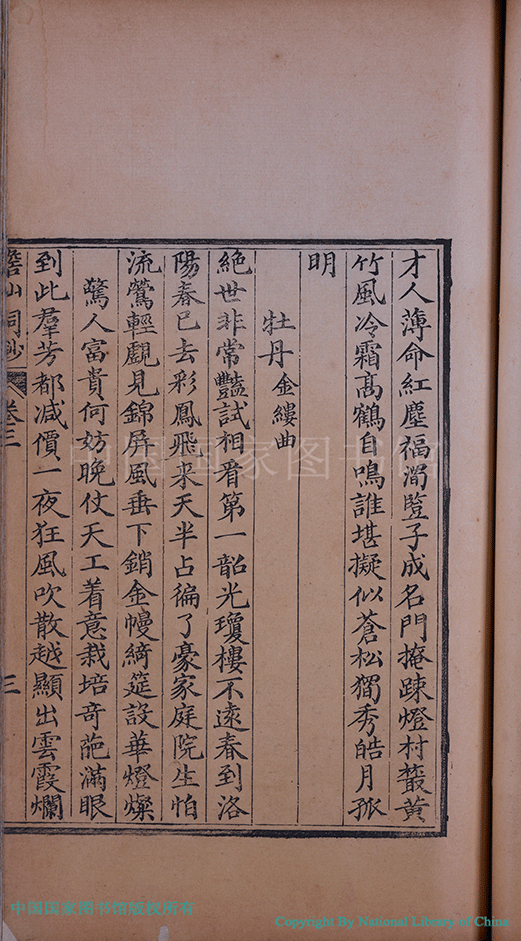 才人薄命紅塵福濁豎子成名門掩踈燈村藂黃
竹風冷霜高鶴自鳴誰堪擬似蒼松獨秀皓月孤
明
牡丹 金縷曲
絕世非常豔試相看第一韶光瓊樓不遠春到洛
陽春已去彩鳳飛来天半占徧了豪家庭院生怕
流鶯輕覷見錦屏風垂下銷金幔綺筵設華燈燦
驚人富貴何妨晚仗天工着意栽培奇葩滿眼
到此羣芳都减價一夜狂風吹散越顯出雲霞爛
山詞鈔 卷三 三
中国国家图书馆
中国国家图书馆版权所有
Copyright By National Library of China